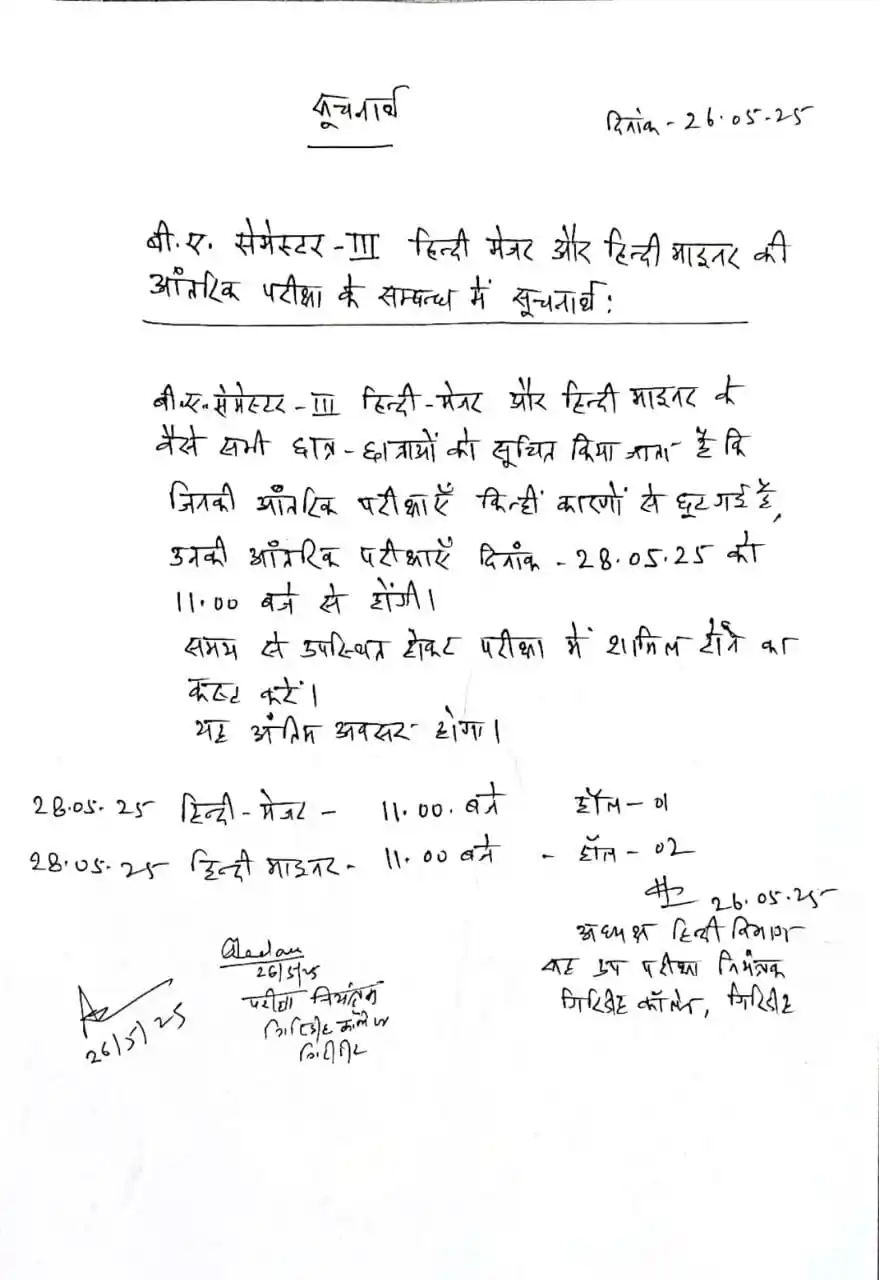 सूचनार्थ
दिनांक - 26.05.25
बी.ए. सेमेस्टर - III हिन्दी मेजर और हिन्दी माइनर की
आंतरिक परीक्षा के सम्बन्ध में सूचनार्थ :
बी.ए. सेमेस्टर - III हिन्दी - मेजर और हिन्दी माइनर के
वैसे सभी छात्र - छात्रायों को सूचित किया जाता है कि
जिनकी आंतरिक परीक्षाएँ किन्हीं कारणों से छूट गई है,
उनकी आंतरिक परीक्षाएँ दिनांक - 28.05.25 को
11.00 बजे से होंगी।
समय से उपस्थित होकर परीक्षा में शामिल होने का
कष्ट करें।
यह अंतिम अवसर होगा।
28.05.25 हिन्दी - मेजर - 11.00. बजे हॉल - 01
28.05.25 हिन्दी माइनर - 11.00 बजे - हॉल - 02
26.05.25
अध्यक्ष हिन्दी विभाग
सह उप परीक्षा नियंत्रक
गिरिडीह कॉलेज, गिरिडीह
26/5/25
परीक्षा नियंत्रक
गिरिडीह कॉलेज
गिरिडीह
26/5/25